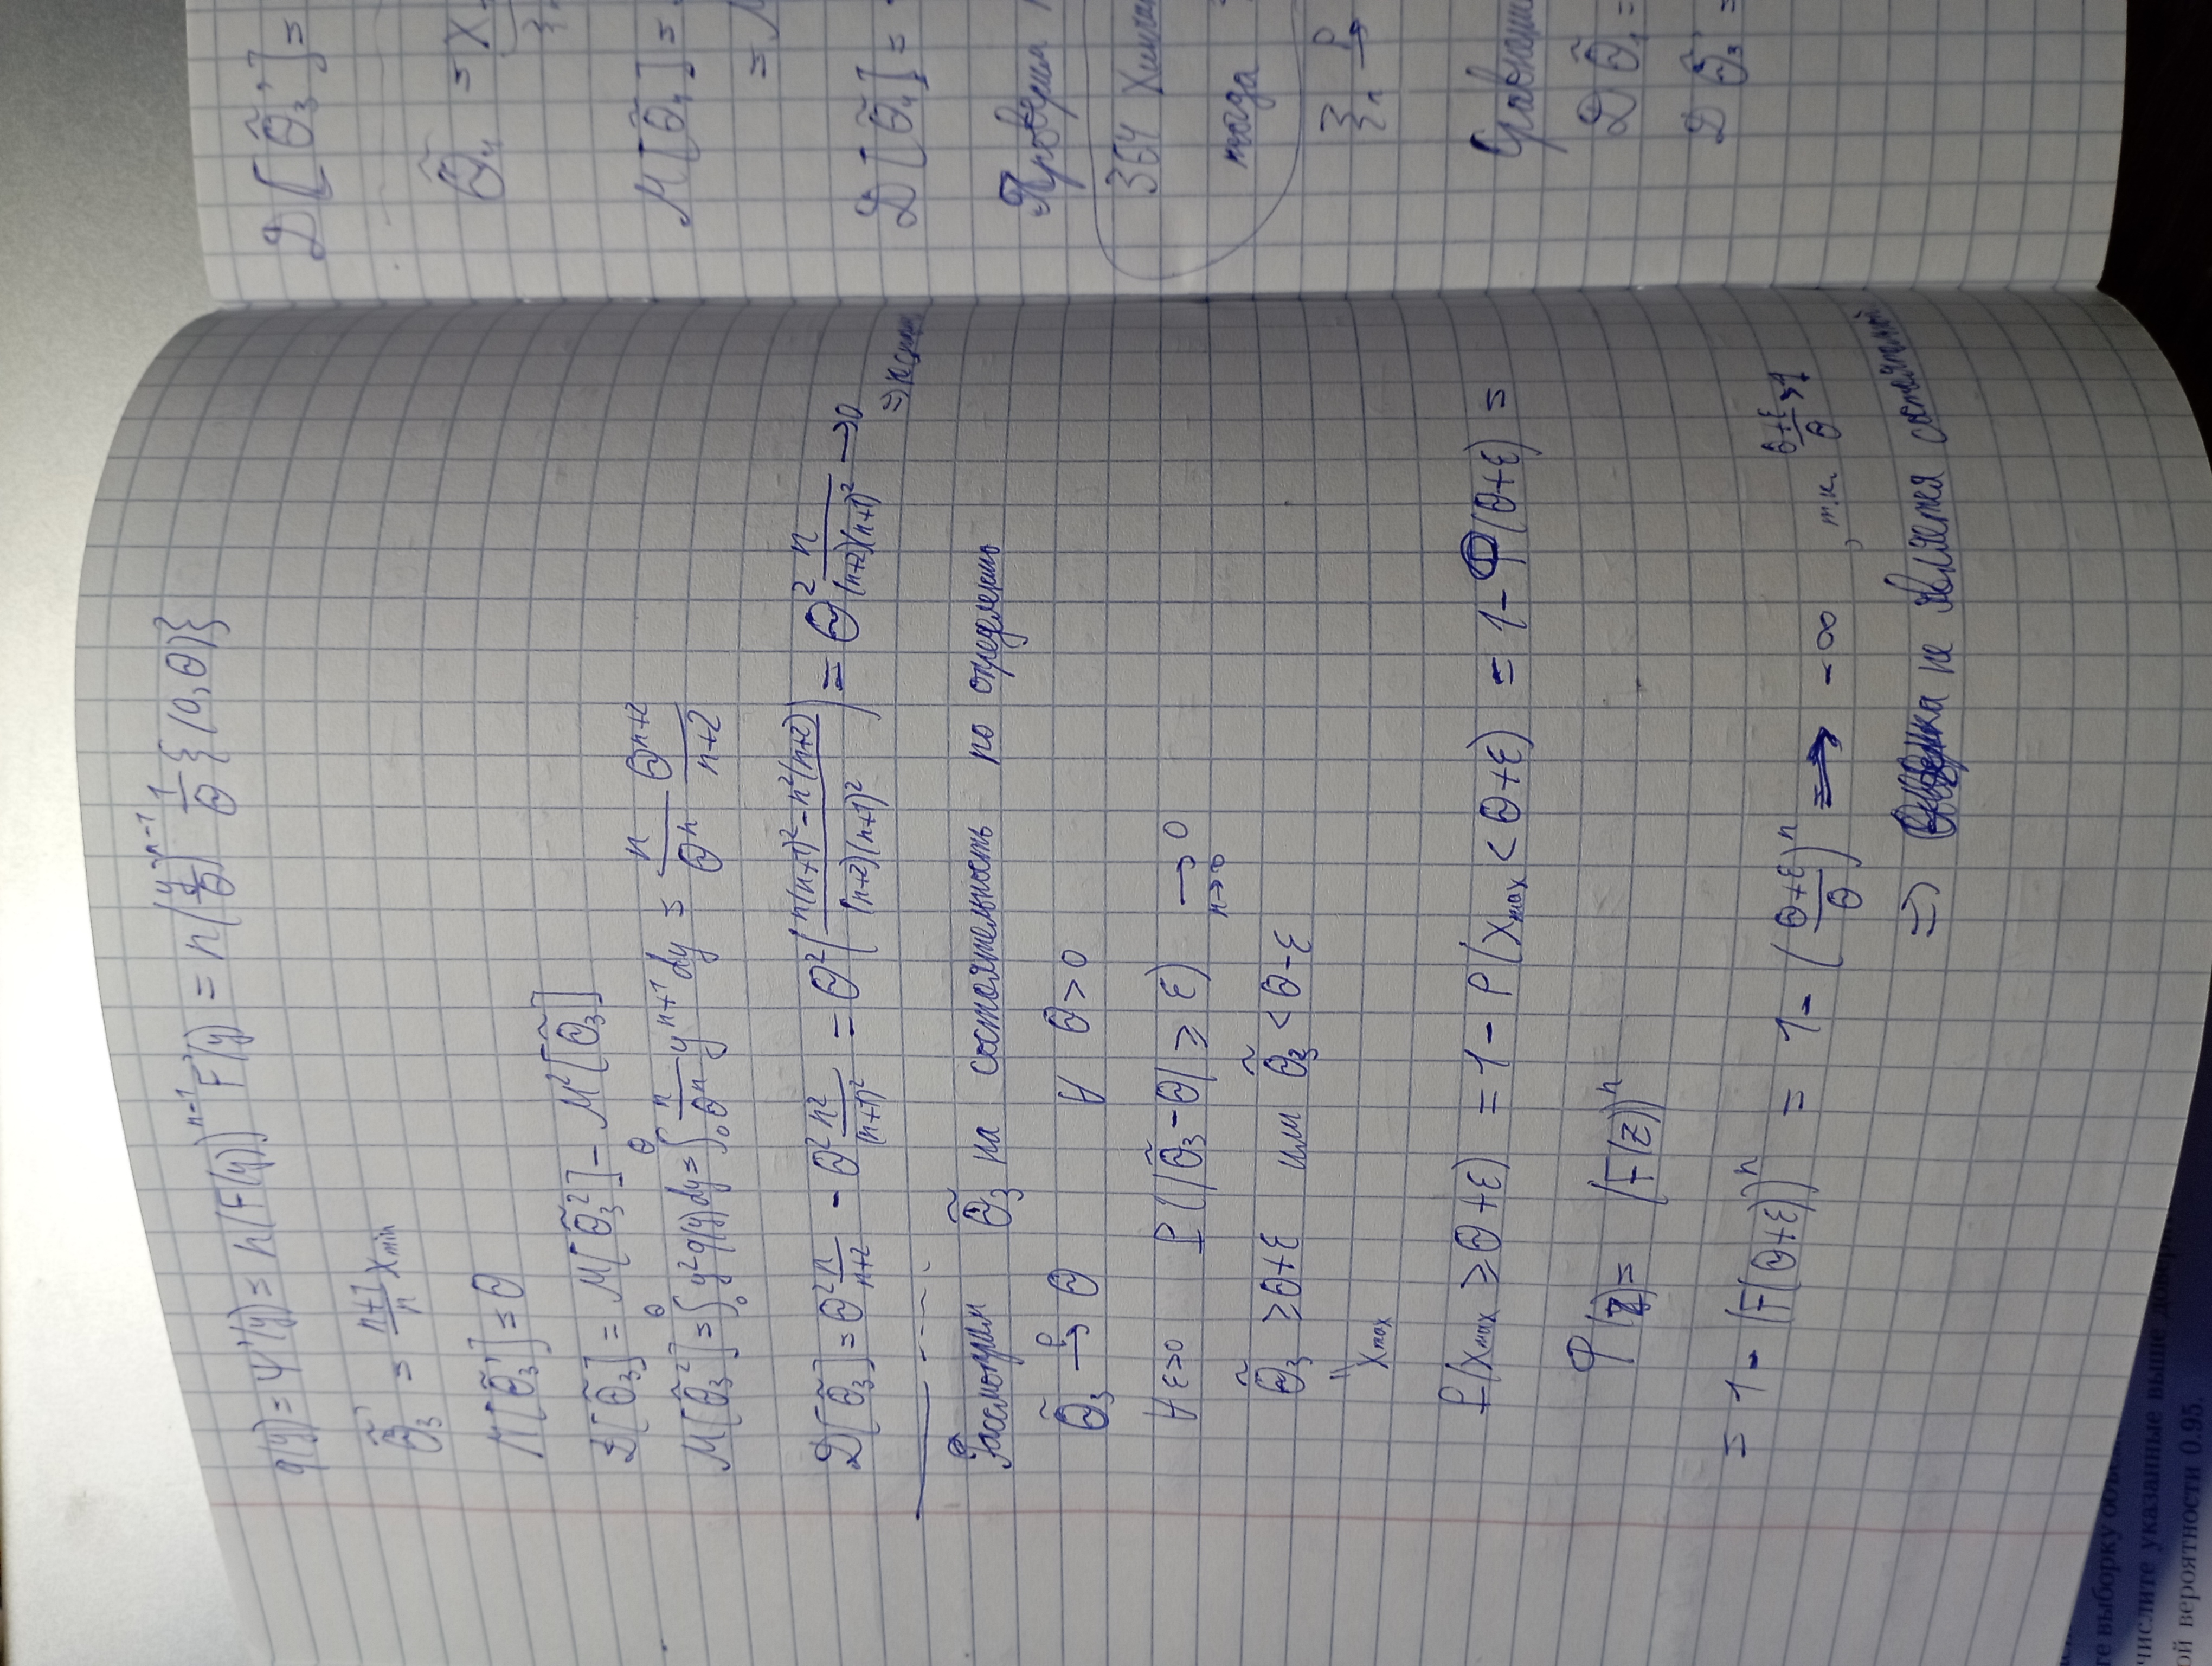 q(y) = Ψ'(y) = n(F(y))^{n-1} F'(y) = n(y/θ)^{n-1} 1/θ {(0, θ)}
θ̃₃' = (n+1)/n x_min
M[θ̃₃'] = θ
D[θ̃₃] = M[θ̃₃²] - M²[θ̃₃]
M[θ̃₃²] = ∫₀^θ y² q(y) dy = ∫₀^θ n/θⁿ y^{n+1} dy = n/θⁿ θ^{n+2}/(n+2)
D[θ̃₃] = θ² n/(n+2) - θ² n²/(n+1)² = θ² ( (n(n+1)² - n²(n+2)) / ((n+2)(n+1)²) ) = θ² n/((n+2)(n+1)²) → 0
⇒
Рассмотрим θ̃₃ на состоятельность по определению
θ̃₃ →^P θ ∀ θ > 0
∀ ε > 0 P(|θ̃₃ - θ| ≥ ε) → 0 n→∞
θ̃₃ ≥ θ+ε или θ̃₃ < θ-ε
" x_max
P(x_max ≥ θ+ε) = 1 - P(x_max < θ+ε) = 1 - Φ(θ+ε) =
Φ(z) = (F(z))ⁿ
= 1 - (F(θ+ε))ⁿ = 1 - ((θ+ε)/θ)ⁿ → -∞ , т.к. (θ+ε)/θ > 1
⇒ Оценка не является состоятельной
D[θ̃₃'] =
θ̃₄ = x
M[θ̃₄] =
= M
D[θ̃₄] =
Проверим
ЗБЧ Хинчи
тогда
ξₙ →^P
Сравнени
D θ̃₁ =
D θ̃₃' =
те выборку объём
числите указанные выше довери
ой вероятности 0.95.